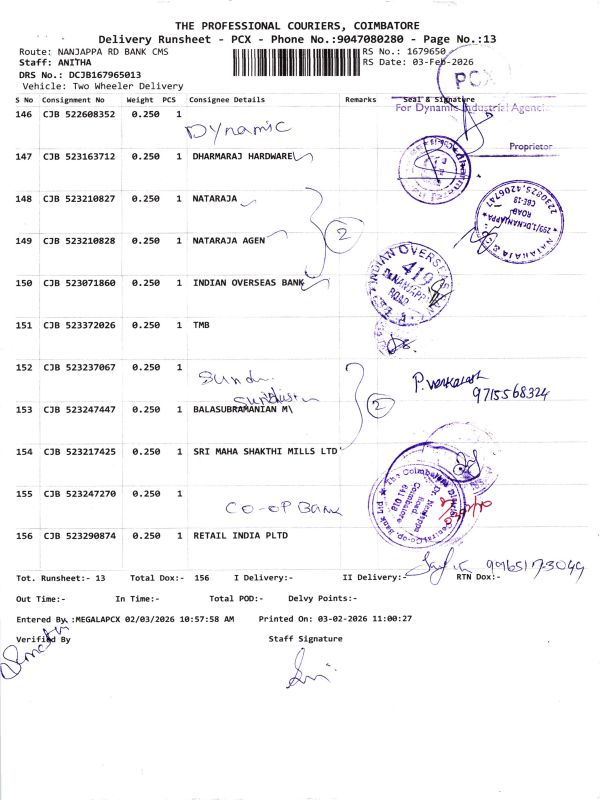 THE PROFESSIONAL COURIERS, COIMBATORE
Delivery Runsheet - PCX - Phone No.:9047080280 - Page No.:13
Route: NANJAPPA RD BANK CMS
RS No.: 1679650
Staff: ANITHA
RS Date: 03-Feb-2026
DRS No.: DCJB167965013
Vehicle: Two Wheeler Delivery
PCX
S No Consignment No Weight PCS Consignee Details Remarks Seal & Signature
146 CJB 522608352 0.250 1
Dynamic
For Dynamic Industrial Agencies
Proprietor
147 CJB 523163712 0.250 1 DHARMARAJ HARDWARE
148 CJB 523210827 0.250 1 NATARAJA
2
149 CJB 523210828 0.250 1 NATARAJA AGEN
NATARAJA &
259/1, Dr. NANJAPPA
ROAD
CBE-18
2230925, 4206747
150 CJB 523071860 0.250 1 INDIAN OVERSEAS BANK
INDIAN OVERSEAS
419
Dr. NANJAPPA
ROAD
151 CJB 523372026 0.250 1 TMB
152 CJB 523237067 0.250 1
P. Venkatesh
9715568324
153 CJB 523247447 0.250 1 BALASUBRAMANIAN M\
2
154 CJB 523217425 0.250 1 SRI MAHA SHAKTHI MILLS LTD
155 CJB 523247270 0.250 1
CO-OP Bank
The Coimbatore District Central Co-op. Bank Ltd
Dr. Nanjappa
Road
Coimbatore
641 018
156 CJB 523290874 0.250 1 RETAIL INDIA PLTD
Tot. Runsheet:- 13 Total Dox:- 156 I Delivery:- II Delivery:- RTN Dox:-
Out Time:- In Time:- Total POD:- Delvy Points:-
Entered By :MEGALAPCX 02/03/2026 10:57:58 AM Printed On: 03-02-2026 11:00:27
Verified By Staff Signature